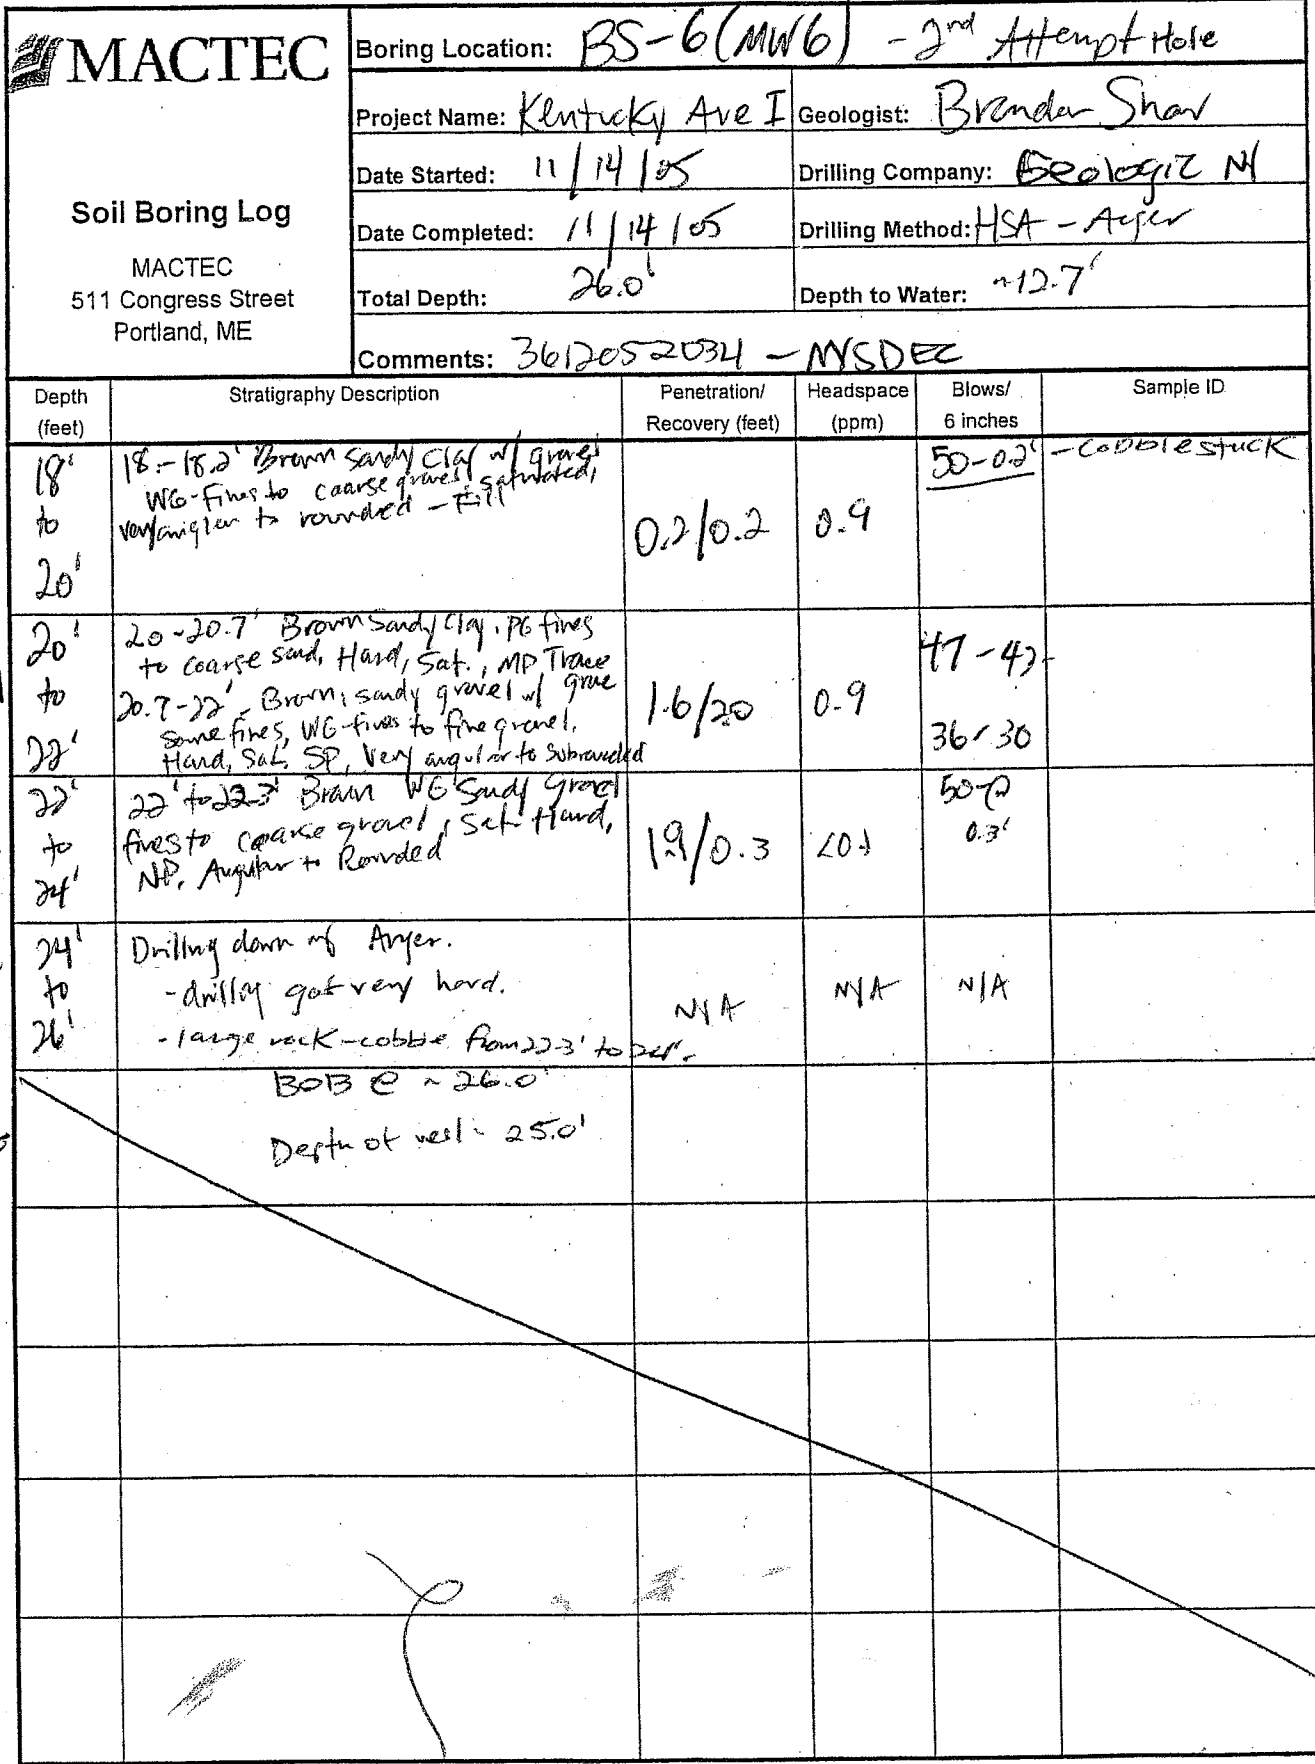 MACTEC
Soil Boring Log
MACTEC
511 Congress Street
Portland, ME
Boring Location: BS-6 (MW6) - 2nd Attempt Hole
Project Name: Kentucky Ave I
Geologist: Brendan Shaw
Date Started: 11/14/05
Drilling Company: Geologic NY
Date Completed: 11/14/05
Drilling Method: HSA - Auger
Total Depth: 26.0'
Depth to Water: ~12.7'
Comments: 3612052034 - NYSDEC
Depth (feet)
Stratigraphy Description
Penetration/ Recovery (feet)
Headspace (ppm)
Blows/ 6 inches
Sample ID
18' to 20'
18.-18.2' Brown Sandy Clay w/ gravel
WG-Fines to coarse gravel, saturated,
very angular to rounded - Fill
0.2/0.2
0.9
50-0.2'
-cobble stuck
20' to 22'
20-20.7' Brown Sandy Clay, PG fines
to coarse sand, Hard, Sat., MP Trace
20.7-22', Brown, sandy gravel w/
some fines, WG-fines to fine gravel.
Hard, Sat, SP, Very angular to Subrounded
1.6/20
0.9
47-47
36/30
22' to 24'
22' to 22.3' Brown WG Sandy Gravel
fines to coarse gravel, Sat. Hard,
NP, Angular to Rounded
/0.3
50-
0.3'
24' to 26'
Drilling down w/ Auger.
-drilling got very hard.
-large rock-cobble from 22.3' to 24'.
N/A
N/A
N/A
BOB @ ~26.0'
Depth of well - 25.0'